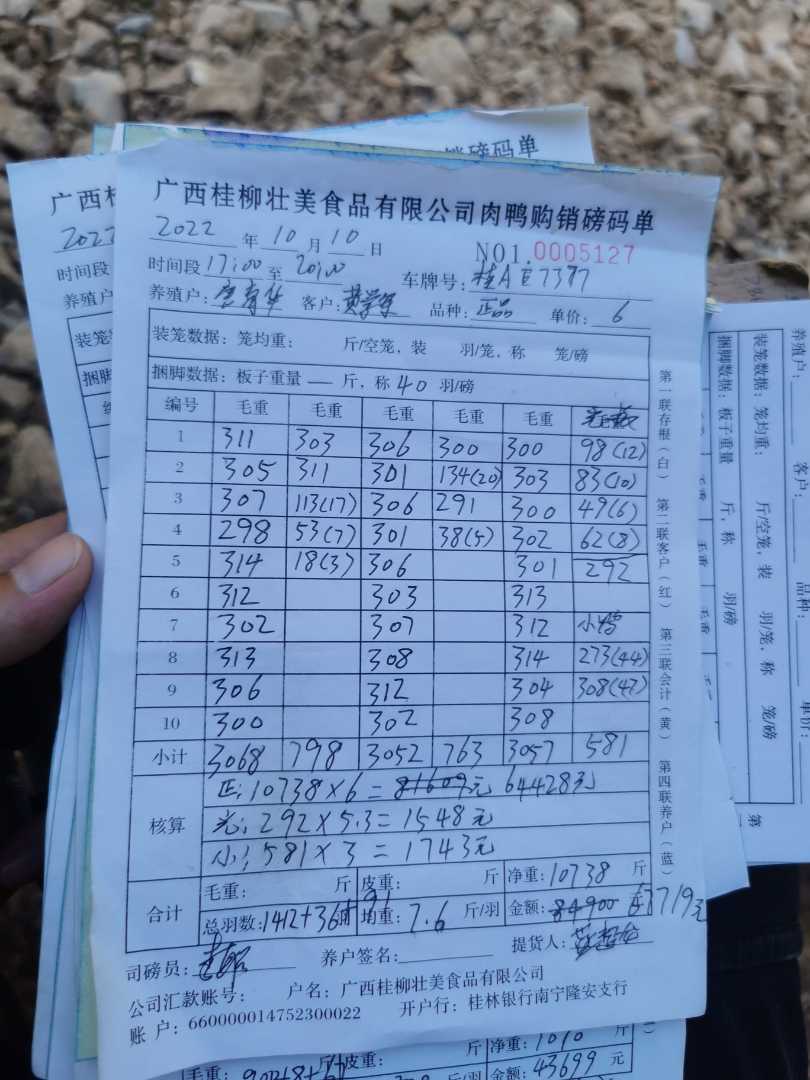 广西桂柳壮美食品有限公司肉鸭购销磅码单
2022 年 10 月 10 日 NO1.0005127
时间段 17:00 至 20:00 车牌号: 桂A E7377
养殖户: 客户: 品种: 正品 单价: 6
装笼数据: 笼均重: 斤/空笼, 装 羽/笼, 称 笼/磅
捆脚数据: 板子重量 — 斤, 称 40 羽/磅
编号 毛重 毛重 毛重 毛重 毛重
1 311 303 306 300 300 98(12)
2 305 311 301 134(20) 303 83(10)
3 307 113(17) 306 291 300 49(6)
4 298 53(7) 301 38(5) 302 62(8)
5 314 18(3) 306 301 292
6 312 303 313
7 302 307 312 小鸭
8 313 308 314 273(44)
9 306 312 304 308(47)
10 300 302 308
小计 3068 798 3052 763 3057 581
核算
正: 10738×6= 81609元 64428元
光: 292×5.3=1548元
小: 581×3=1743元
合计
毛重: 斤 皮重: 斤 净重: 10738 斤
总羽数: 1412+36 均重: 7.6 斤/羽 金额: 84900 67719元
司磅员: 养户签名: 提货人:
公司汇款账号: 户名: 广西桂柳壮美食品有限公司
账 户: 660000014752300022 开户行: 桂林银行南宁隆安支行
第一联存根(白) 第二联客户(红) 第三联会计(黄) 第四联养户(蓝)
广西桂
2022
时间段
养殖户
装笼
捆脚
销磅码单
养殖户: 客户: 品种: 单价:
装笼数据: 笼均重: 斤/空笼, 装 羽/笼, 称 笼/磅
捆脚数据: 板子重量 斤, 称 羽/磅
毛重 毛重
第
毛重: 斤 皮重: 斤 净重: 斤
金额: 43699 元